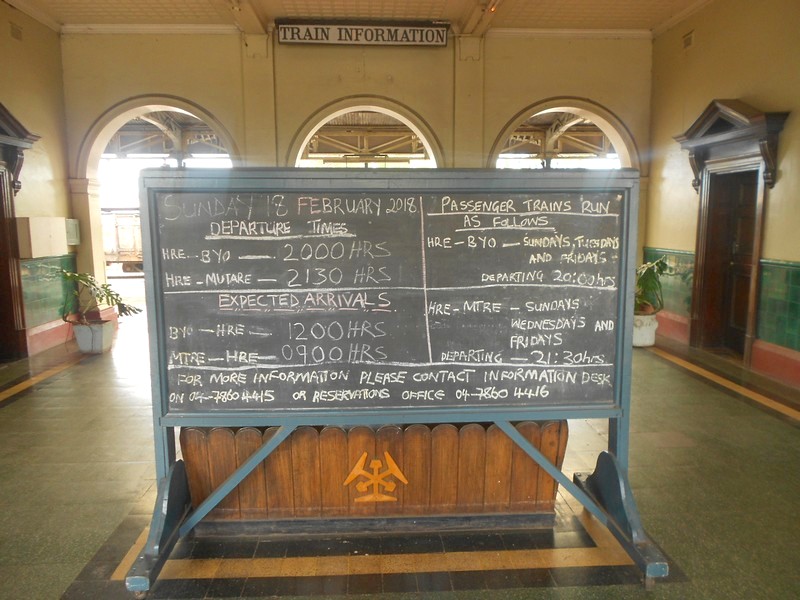 TRAIN INFORMATION
SUNDAY 18 FEBRUARY 2018
DEPARTURE TIMES
HRE - BYO — 2000 HRS
HRE - MUTARE - 2130 HRS
EXPECTED ARRIVALS
BYO — HRE — 1200 HRS
MTRE — HRE — 0900 HRS
PASSENGER TRAINS RUN
AS FOLLOWS
HRE - BYO — SUNDAYS, TUESDAYS
AND FRIDAYS
DEPARTING 20:00hrs
HRE - MTRE - SUNDAYS
WEDNESDAYS AND
FRIDAYS
DEPARTING — 21:30hrs
FOR MORE INFORMAITON PLEASE CONTACT INFORMATION DESK
ON 04-7860 4415 OR RESERVATIONS OFFICE 04-7860 4416